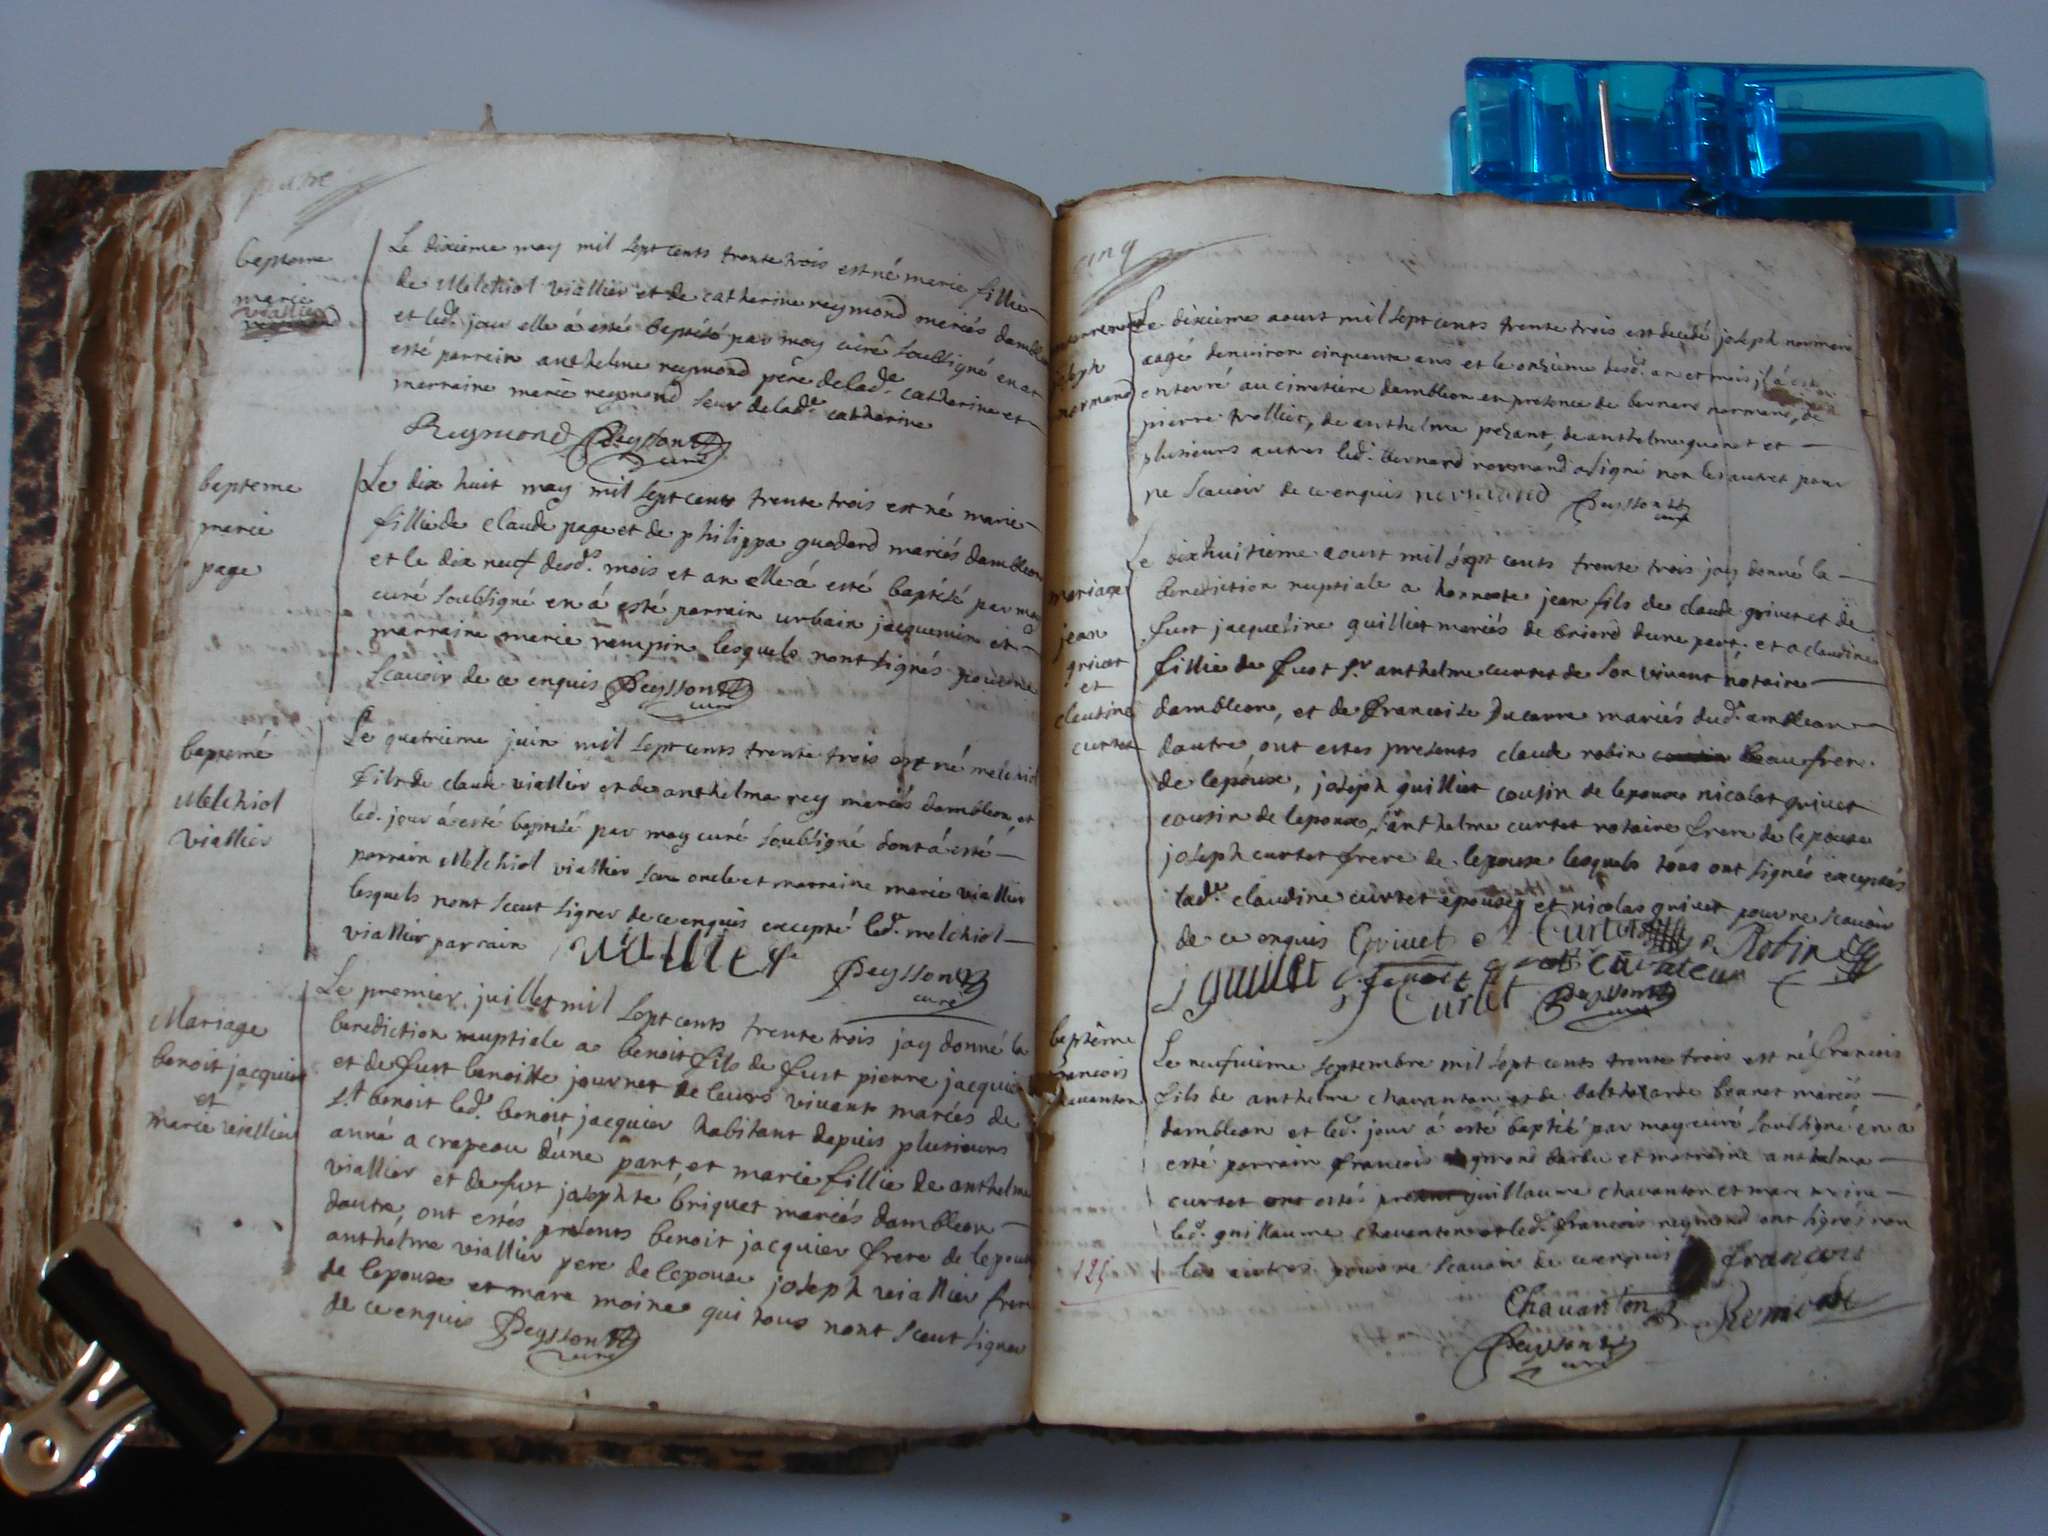 quatre
bapteme
marie
viallier
Le dixieme may mil sept cents trente trois est né marie fillie
de Melchiol viallier et de catherine reymond mariés damble
et led. jour elle á esté baptisé par moy curé soubsigné en at
esté parrain anthelme reymond pére de lad.e catherine et
marraine marie reymond seur de lad.e catherine
Reymond Peysson
curé
bapteme
marie
page
Le dix huit may mil sept cents trente trois est né marie
fillie de claude page et de philippa guodard mariés dambleon
et le dix neuf desd.s mois et an elle á esté baptisé par moy
curé soubsigné en á esté parrain urbain jacquemin et
marraine marie rampin lesquels nont signés pour ne
scauoir de ce enquis Peysson
curé
bapteme
Melchiol
viallier
Le quatrieme juin mil sept cents trente trois est né melchiol
fils de claude viallier et de anthelma rey mariés dambleon et
led. jour á esté baptisé par moy curé soubsigné dont á esté
parrain Melchiol viallier son oncle et marraine marie viallier
lesquels nont sceut signer de ce enquis excepté led. melchiol
viallier parrain viallier
Peysson
curé
Mariage
benoit jacquier
et
marie viallier
Le premier juillet mil sept cents trente trois jay donné la
benediction nuptiale a benoit fils de fust pierre jacquier
et de fust benoitte journet de leurs vivant mariés de
st benoit led. benoit jacquier habitant depuis plusieurs
anné a crapeou dune part, et marie fillie de anthelme
viallier et de fust josephte briquet mariés dambleon
dautre, ont estés presents benoit jacquier frere de lepoux
anthelme viallier pere de lepouse joseph viallier frere
de lepouse et marc moine qui tous nont sceut signer
de ce enquis Peysson
curé
cinq
joseph
normand
Le dixieme aoust mil sept cents trente trois est decedé joseph normand
aagé denuiron cinquante ans et le onzieme desd. an et mois il á esté
enterré au cimetiere dambleon en presence de bernard normand, de
pierre trollict, de anthelme pesant, de anthelme guonet et
plusieurs autres led. bernard normand a signé non les autres pour
ne scauoir de ce enquis normand Peysson
curé
mariage
jean
griuet
et
claudine
curtet
Le dixhuitieme aoust mil sept cents trente trois jay donné la
benediction nuptiale a honneste jean fils de claude griuet et de
fust jacqueline guilliet mariés de briord dune part, et a claudine
fillie de fust sr anthelme curtet de son vivant notaire
dambleon, et de francoise Ducarre mariés dud. ambleon
dautre, ont estes presents claude robin beaufrere
de lepouse, joseph guilliet cousin de lepoux nicolas griuet
cousin de lepoux, sr anthelme curtet notaire frere de lepouse
joseph curtet frere de lepouse lesquels tous ont signés exceptés
lad.e claudine curtet epouse et nicolas griuet pour ne scauoir
de ce enquis Griuet Curtet Robin
j guilliet curateur
Curtet Peysson
curé
baptême
francois
chavanton
Le neufuieme septembre mil sept cents trente trois est né francois
fils de anthelme chavanton et de balthezarde brunet mariés
dambleon et led. jour á esté baptisé par moy curé soubsigné en á
esté parrain francois reymond barbu et marraine anthelma
curtet ont estés guillaume chavanton et marc moine
led. guillaume chavanton et led. francois reymond ont signés non
les autres pour ne scauoir de ce enquis francois
125
Chavanton Remond
Peysson
curé